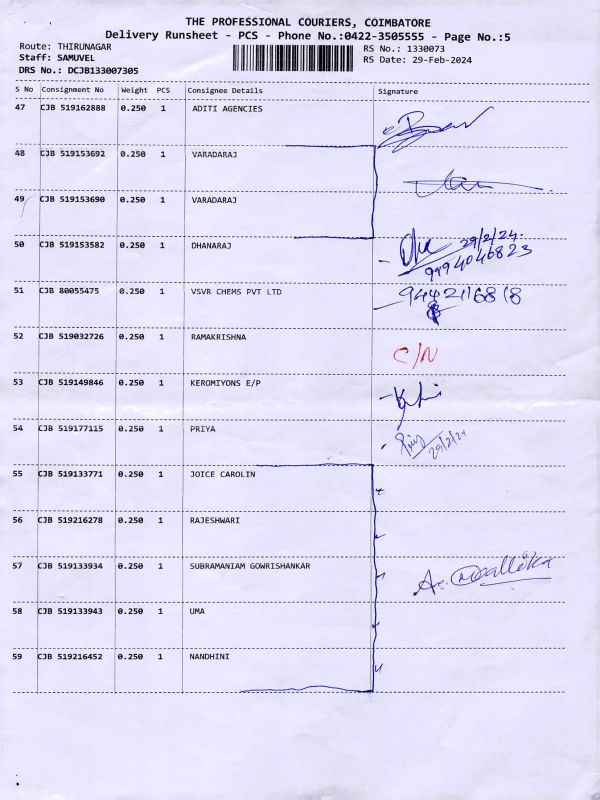 THE PROFESSIONAL COURIERS, COIMBATORE
Delivery Runsheet - PCS - Phone No.:0422-3505555 - Page No.:5
Route: THIRUNAGAR
RS No.: 1330073
Staff: SAMUVEL
RS Date: 29-Feb-2024
DRS No.: DCJB133007305
S No Consignment No Weight PCS Consignee Details Signature
47 CJB 519162888 0.250 1 ADITI AGENCIES
48 CJB 519153692 0.250 1 VARADARAJ
49 CJB 519153690 0.250 1 VARADARAJ
50 CJB 519153582 0.250 1 DHANARAJ 29/2/24.
9994046823
51 CJB 80055475 0.250 1 VSVR CHEMS PVT LTD 9442116818
52 CJB 519032726 0.250 1 RAMAKRISHNA C/N
53 CJB 519149846 0.250 1 KEROMIYONS E/P
54 CJB 519177115 0.250 1 PRIYA 29/2/24
55 CJB 519133771 0.250 1 JOICE CAROLIN
56 CJB 519216278 0.250 1 RAJESHWARI
57 CJB 519133934 0.250 1 SUBRAMANIAM GOWRISHANKAR Mallika
58 CJB 519133943 0.250 1 UMA
59 CJB 519216452 0.250 1 NANDHINI